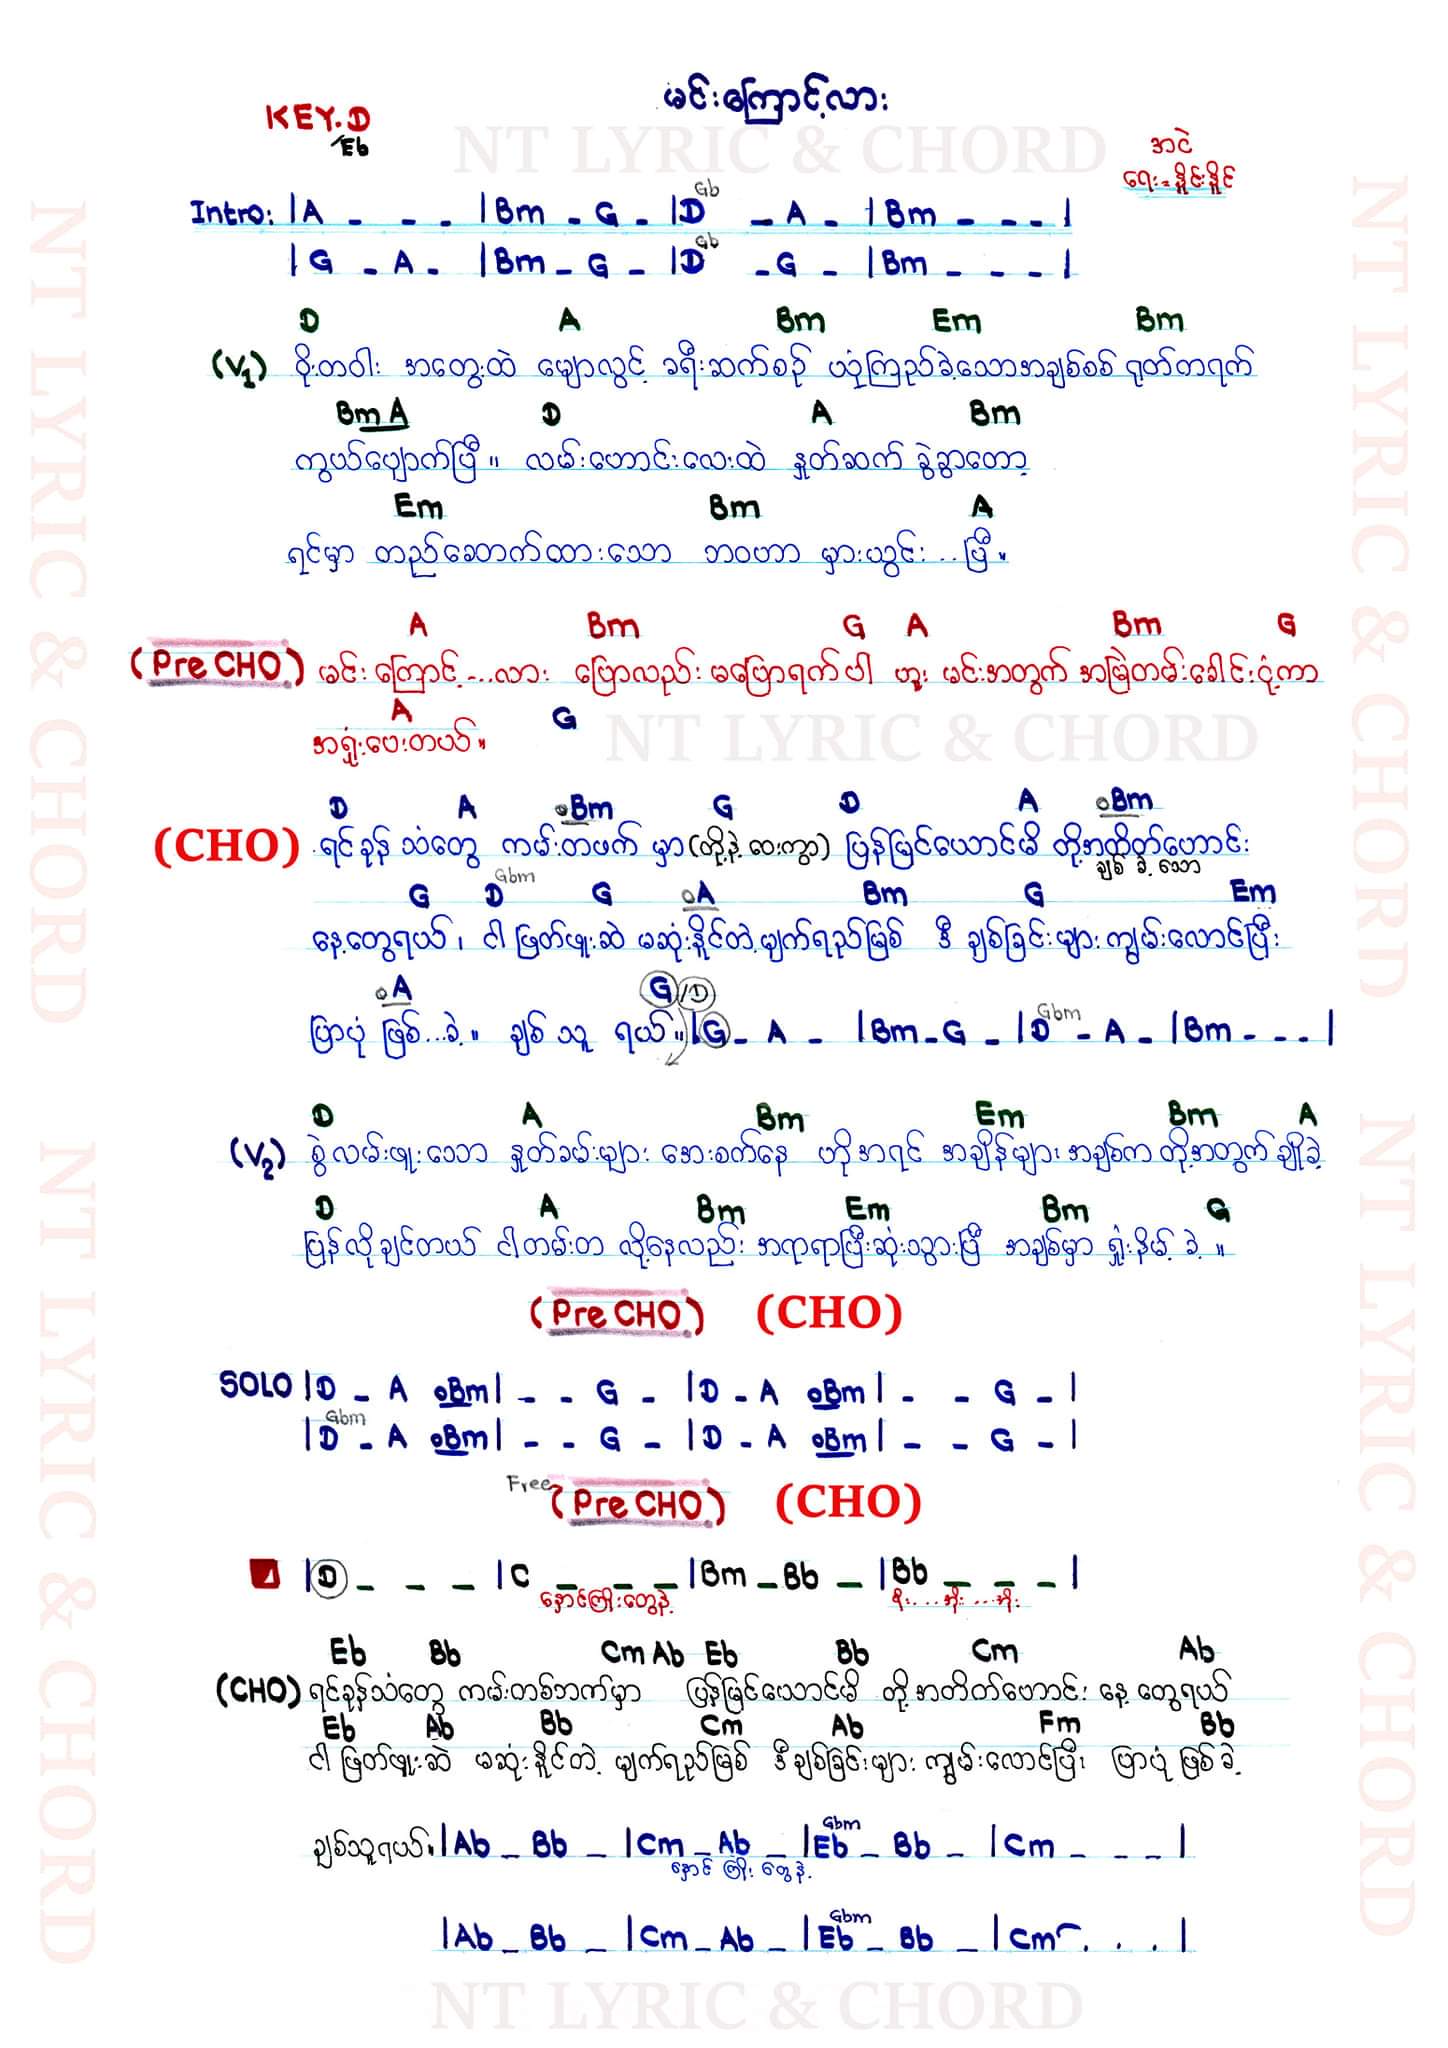 မင်းကြောင့်လား
KEY.D
/Eb
NT LYRIC & CHORD
အငဲ
ရေး = နိူင်းနိူင်
Intro: |A - - - |Bm - G - |D Gb - A - |Bm - - - |
|G - A - |Bm - G - |D Gb - G - |Bm - - - |
D A Bm Em Bm
(V1) ဝိုးတဝါး အတွေးထဲ မျောလွင့် ခရီးဆက်စဉ် ယုံကြည်ခဲ့သောအချစ်စစ် ရုတ်တရက်
Bm A D A Bm
ကွယ်ပျောက်ပြီ။ လမ်းဟောင်းလေးထဲ နှုတ်ဆက် ခွဲခွာတော့
Em Bm A
ရင်မှာ တည်ခေတက်ထားသော ဘဝဟာ မှားယွင်း...ပြီ။
A Bm G A Bm G
(Pre CHO) မင်းကြောင့်...လား ပြောလည်း မပြောရက်ပါ ဟူး မင်းအတွက် အမြဲတမ်းခေါင်းငုံ့ကာ
A G
အရှုံးပေးတယ်။
NT LYRIC & CHORD
D A oBm G D A oBm
(CHO) ရင်ခုန်သံတွေ ကမ်းတဖက်မှာ (တို့နဲ့ ဝေးကွာ) ပြန်မြင်ယောင်မိ တို့အတိတ်ဟောင်း
ချစ်ခဲ့သော
G D Gbm G oA Bm G Em
နေ့တွေရယ်၊ ငါဖြတ်ဖူးဆဲ မဆုံးနိူင်တဲ့ မျက်ရည်မြစ် ဒီ ချစ်ခြင်းများ ကျွမ်းလောင်ပြီး
oA G/D
ပြာပုံ ဖြစ်...ခဲ့။ ချစ်သူ ရယ်။ |G - A - |Bm - G - |D Gbm - A - |Bm - - - |
D A Bm Em Bm A
(V2) စွဲလမ်းဖူးသော နှုတ်ခမ်းများ အေးစက်နေ ဟိုအရင် အချိန်များ အချစ်က တို့အတွက် ချိုခဲ့
D A Bm Em Bm G
ပြန်လိုချင်တယ် ငါတမ်းတ လို့နေလည်း အရာရာပြီးဆုံးသွားပြီ အချစ်မှာ ရှုံးနိမ့်ခဲ့။
(Pre CHO) (CHO)
SOLO |D - A oBm| - - G - |D - A oBm| - - G - |
|D Gbm - A oBm| - - G - |D - A oBm| - - G - |
Free (Pre CHO) (CHO)
|D - - - |C - - - |Bm - Bb - |Bb - - - |
နှောင်ကြိုးတွေနဲ့
Eb Bb Cm Ab Eb Bb Cm Ab
(CHO) ရင်ခုန်သံတွေ ကမ်းတစ်ဘက်မှာ ပြန်မြင်ယောင်မိ တို့အတိတ်ဟောင်း နေ့တွေရယ်
Eb Ab Bb Cm Ab Fm Bb
ငါဖြတ်ဖူးဆဲ မဆုံးနိူင်တဲ့ မျက်ရည်မြစ် ဒီချစ်ခြင်းများ ကျွမ်းလောင်ပြီး ပြာပုံဖြစ်ခဲ့
ချစ်သူရယ်။ |Ab - Bb - |Cm - Ab - |Eb Gbm - Bb - |Cm - - - |
နှောင်ကြိုးတွေနဲ့
|Ab - Bb - |Cm - Ab - |Eb Gbm - Bb - |Cm . . . |
NT LYRIC & CHORD
NT LYRIC & CHORD
NT LYRIC & CHORD
NT LYRIC & CHORD
NT LYRIC & CHORD